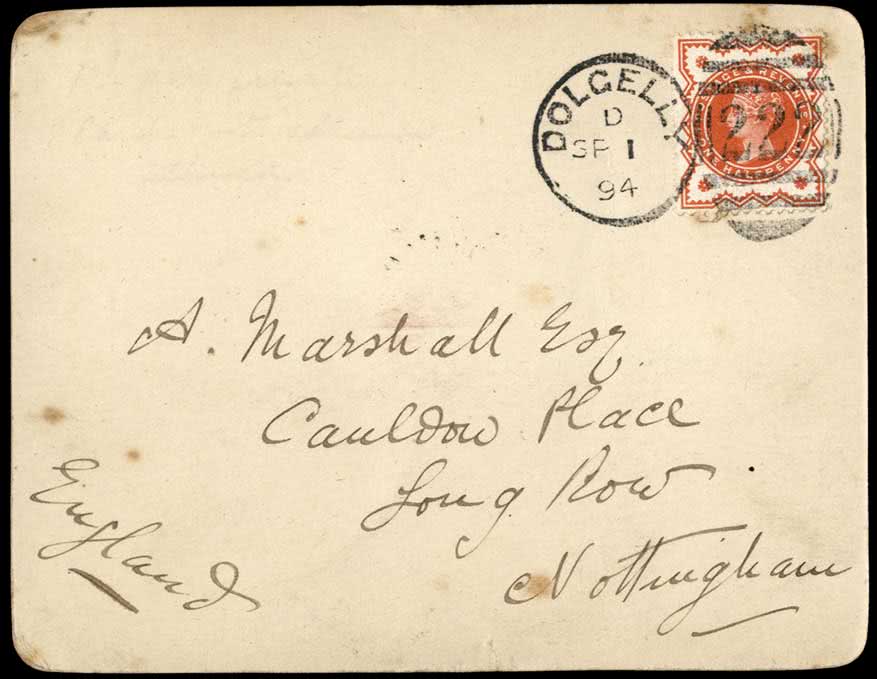 DOLGELLY
D
SP 1
94
POSTAGE & REVENUE
ONE HALFPENNY
227
A. Marshall Esq
Cauldon Place
Long Row
Nottingham
England